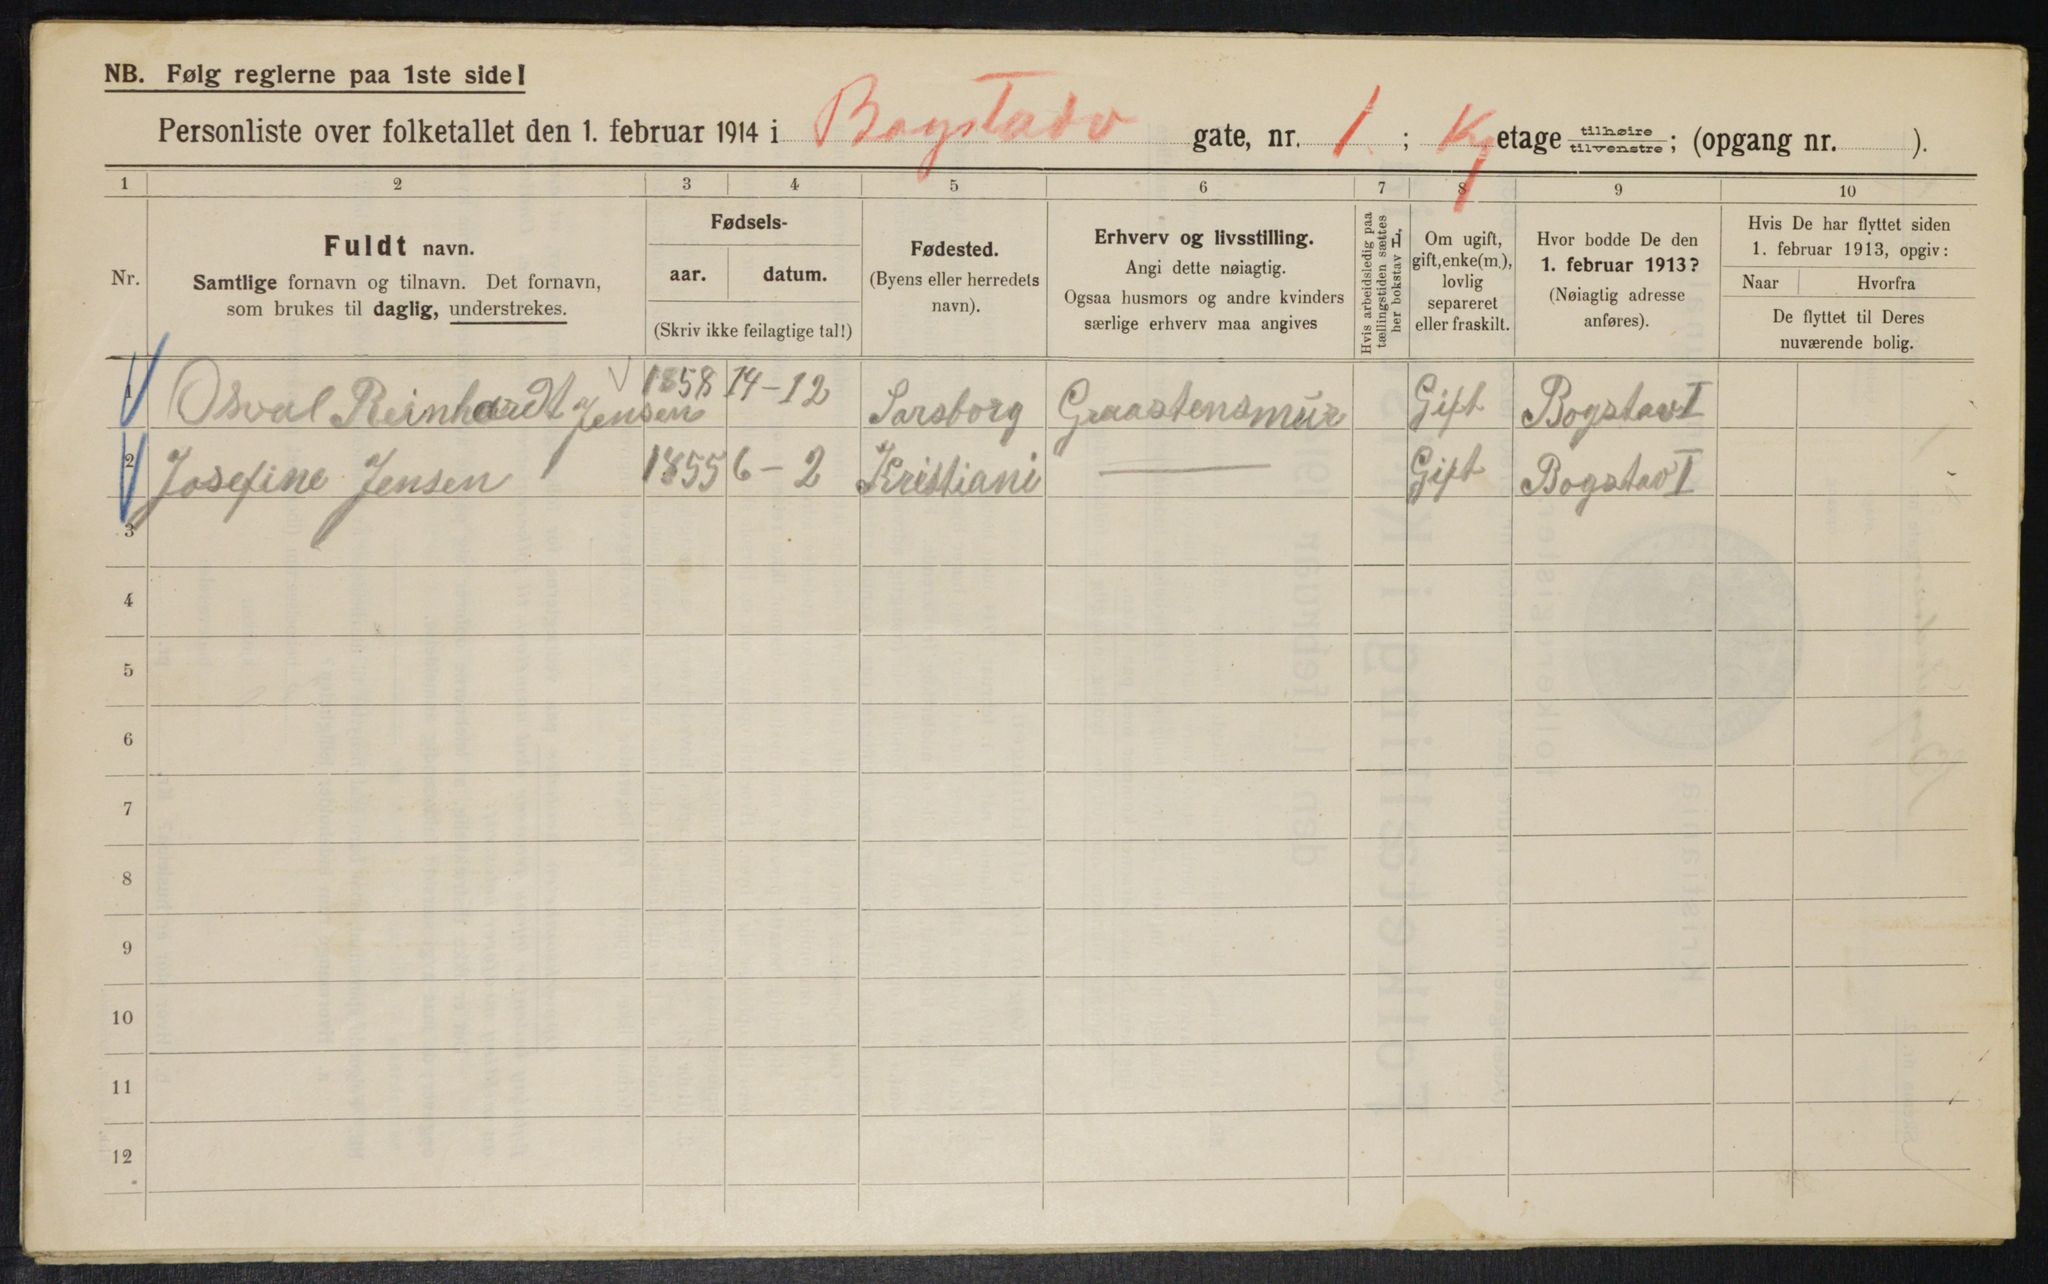 NB. Følg reglerne paa 1ste side!
Personliste over folketallet den 1. februar 1914 i Bogstadv gate, nr. 1. ; Kj etage tilhøire tilvenstre; (opgang nr. ).
1 2 3 4 5 6 7 8 9 10
Nr.
Fuldt navn.
Samtlige fornavn og tilnavn. Det fornavn,
som brukes til daglig, understrekes.
Fødsels-
aar. datum.
(Skriv ikke feilagtige tal!)
Fødested.
(Byens eller herredets
navn).
Erhverv og livsstilling.
Angi dette nøiagtig.
Ogsaa husmors og andre kvinders
særlige erhverv maa angives
Hvis arbeidsledig paa
tællingstiden sættes
her bokstav L.
Om ugift,
gift, enke(m.),
lovlig
separeret
eller fraskilt.
Hvor bodde De den
1. februar 1913?
(Nøiagtig adresse
anføres).
Hvis De har flyttet siden
1. februar 1913, opgiv:
Naar Hvorfra
De flyttet til Deres
nuværende bolig.
1 Osval Reinhardt Jensen 1858 14-12 Sarsborg Graastensmur Gift Bogstav I
2 Josefine Jensen 1855 6-2 Kristiani — Gift Bogstav I
3
4
5
6
7
8
9
10
11
12